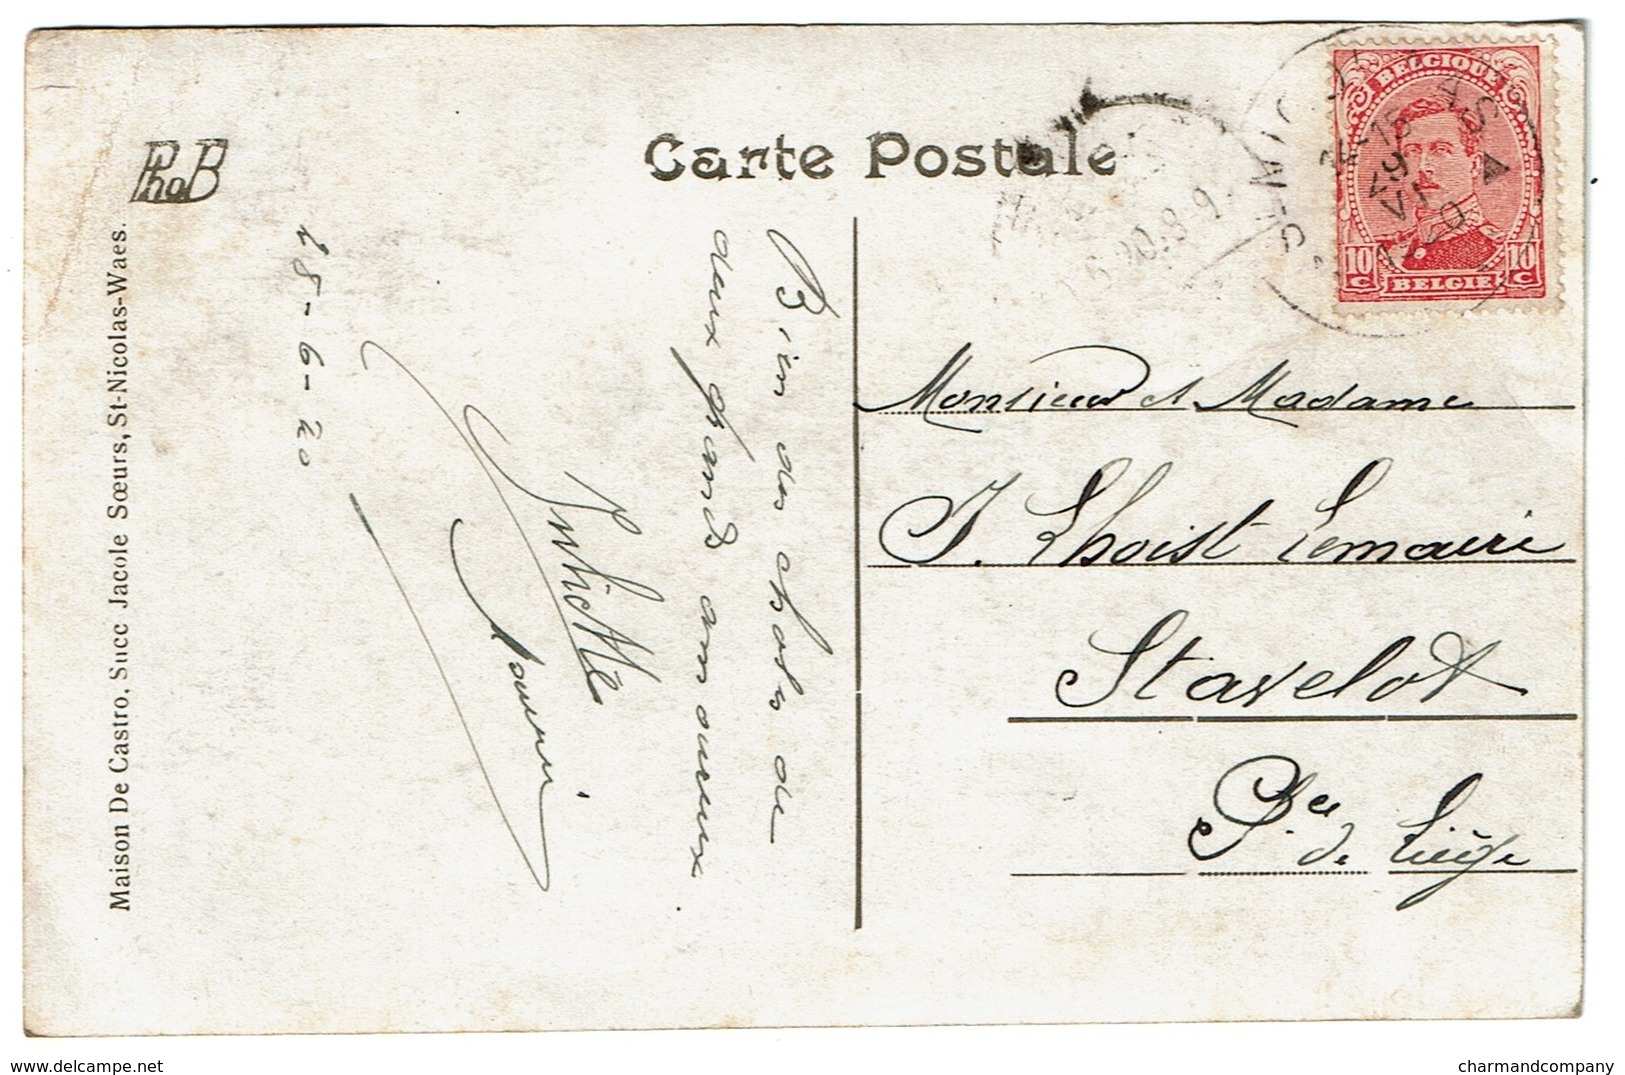 PhoB
Carte Postale
BELGIQUE
10 C
10 C
BELGIE
Maison De Castro, Succ Jacole Sœurs, St-Nicolas-Waes.
28-6-20
Bien des choses de
deux grands amoureux.
Monsieur et Madame
J. Lhoist Lemaire
Stavelot
Pce de Liège
delcampe.net
charmandcompany